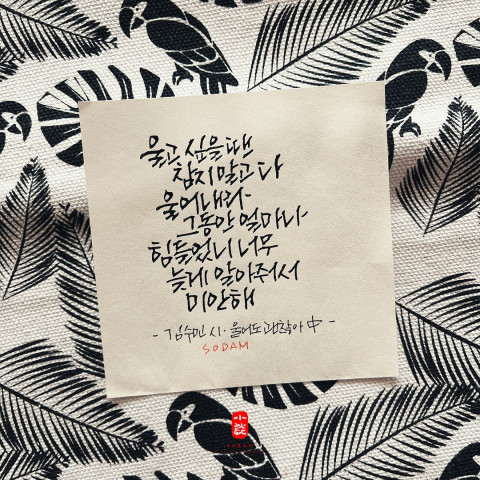 울고 싶을 때
참지 말고 다
울어내라
그동안 얼마나
힘들었니 너무
늦게 알아줘서
미안해
- 김수민 시 · 울어도 괜찮아 中 -
SODAM